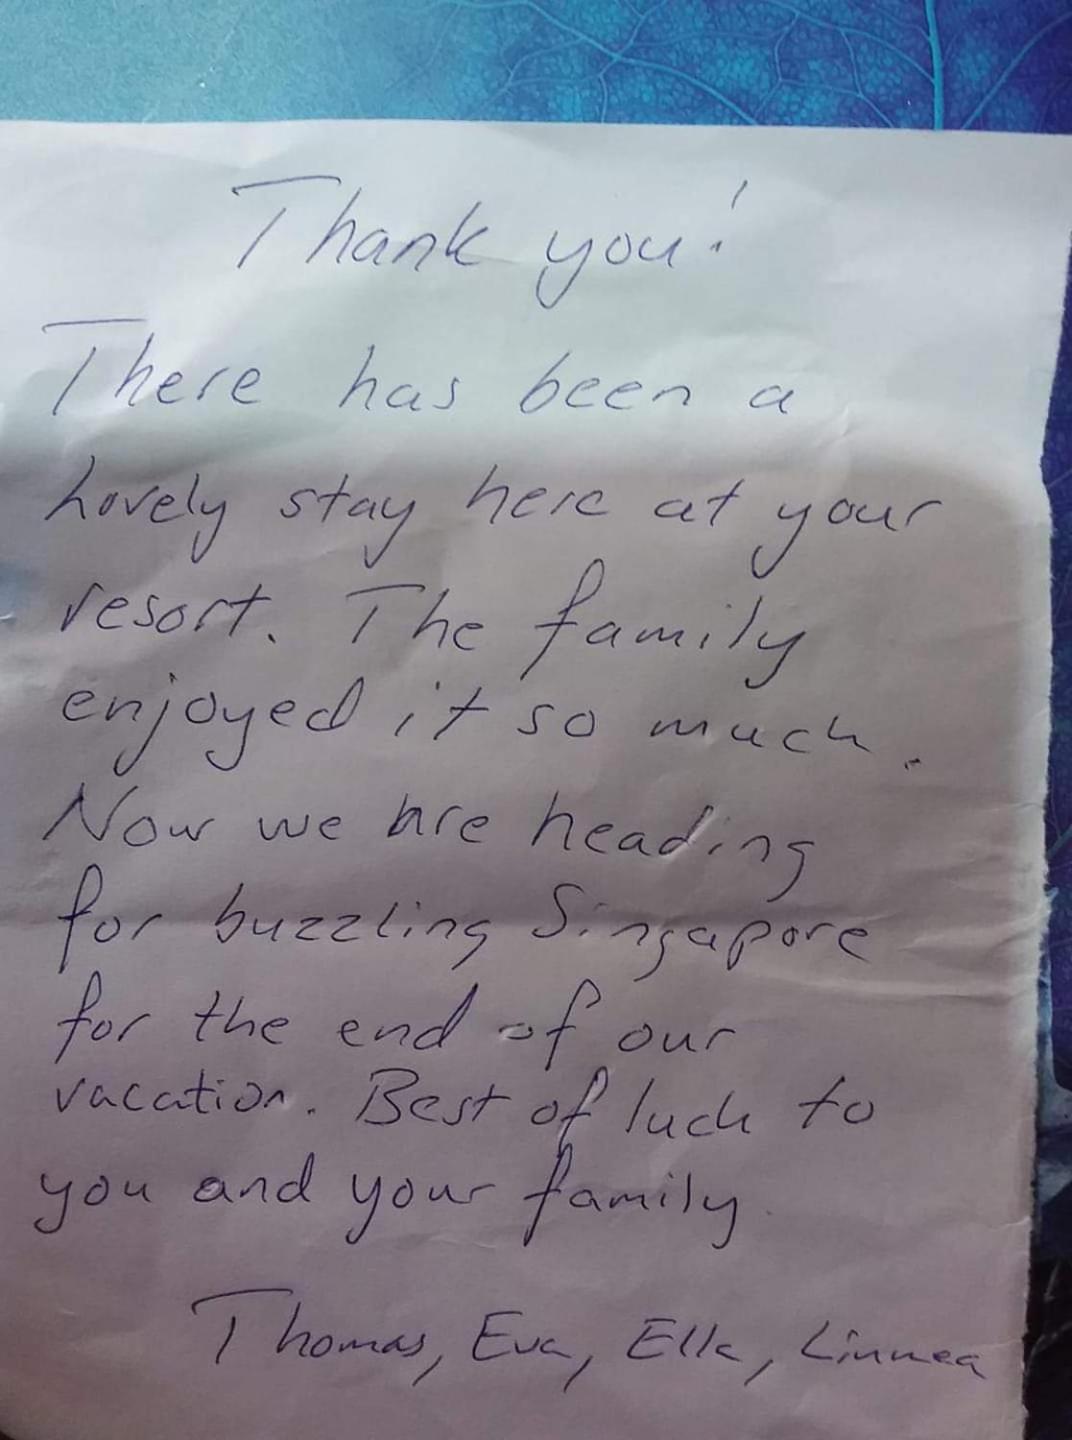 Thank you!
There has been a
lovely stay here at your
resort. The family
enjoyed it so much.
Now we are heading
for buzzling Singapore
for the end of our
vacation. Best of luck to
you and your family.
Thomas, Eva, Ella, Linnea